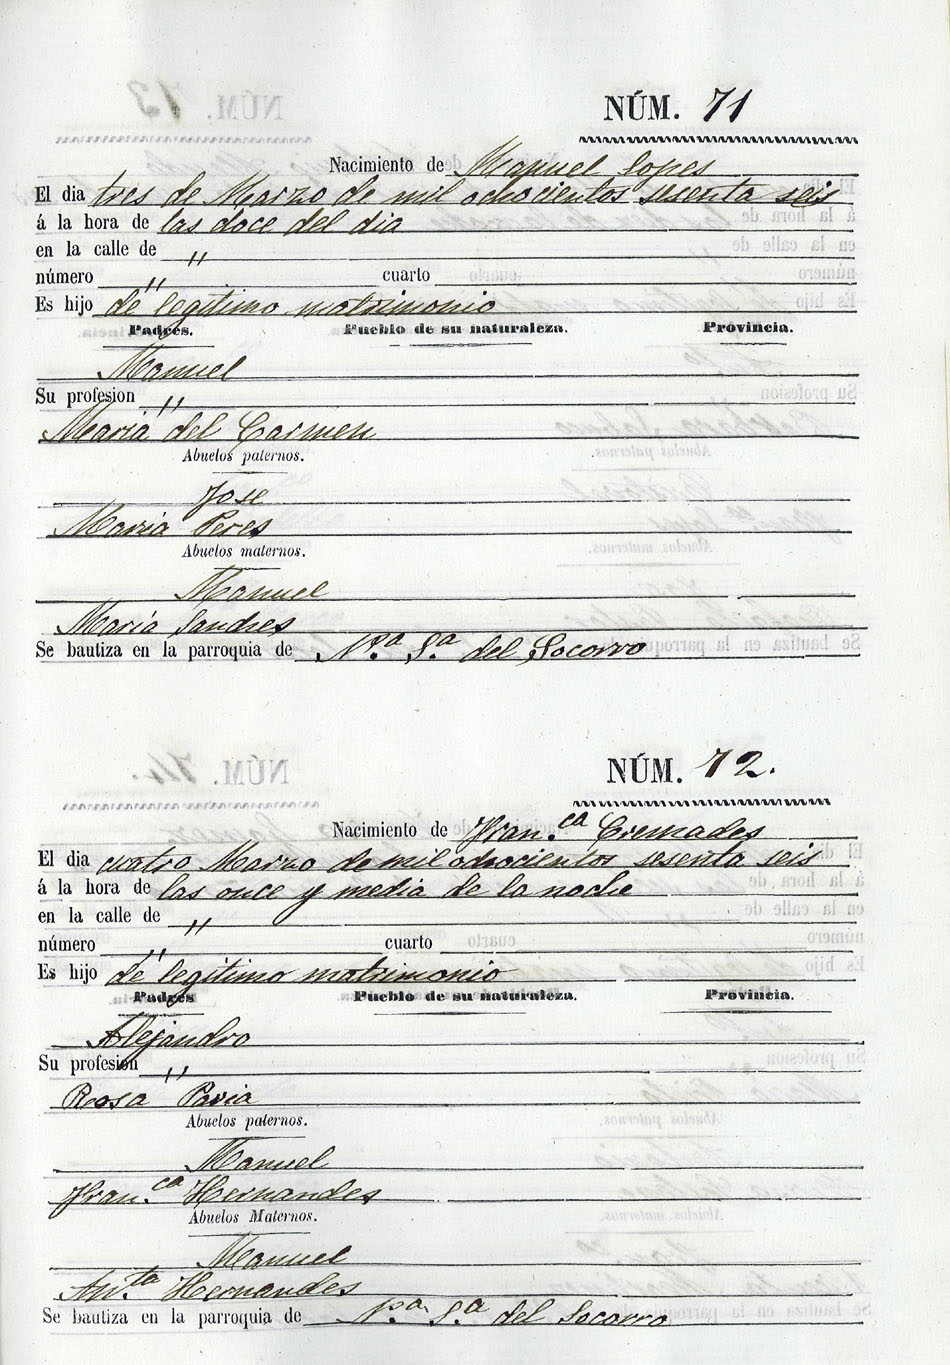 NÚM. 71
Nacimiento de Manuel Lopes
El dia tres de Marzo de mil ochocientos sesenta seis
á la hora de las doce del dia
en la calle de "
número " cuarto
Es hijo de legitimo matrimonio
Padres. Pueblo de su naturaleza. Provincia.
Manuel
Su profesion "
Maria del Carmen
Abuelos paternos.
Jose
Maria Peres
Abuelos maternos.
Manuel
Maria Sandres
Se bautiza en la parroquia de N.ª S.ª del Socorro
NÚM. 72.
Nacimiento de Fran.ca Cremades
El dia cuatro Marzo de mil ochocientos sesenta seis
á la hora de las once y media de la noche
en la calle de "
número " cuarto
Es hijo de legitimo matrimonio
Padres Pueblo de su naturaleza. Provincia.
Alejandro
Su profesion "
Rosa Pavia
Abuelos paternos.
Manuel
Fran.ca Hernandes
Abuelos Maternos.
Manuel
An.ta Hernandes
Se bautiza en la parroquia de N.ª S.ª del Socorro